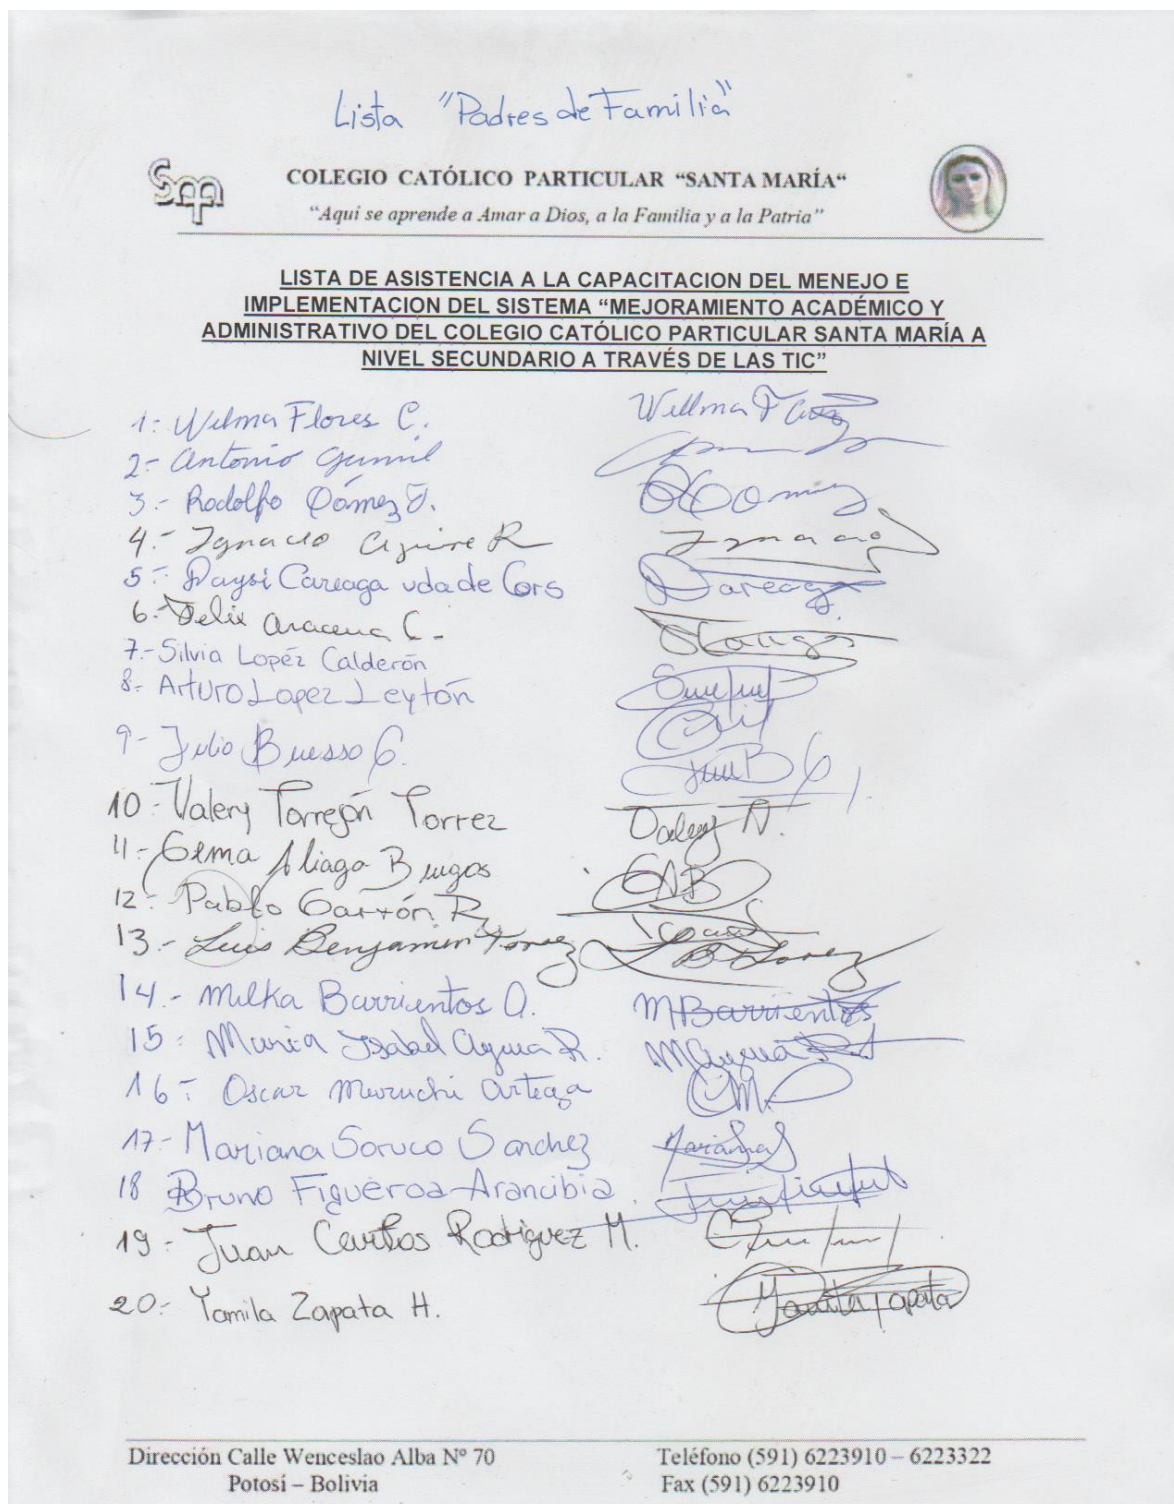 Lista "Padres de Familia"
COLEGIO CATÓLICO PARTICULAR “SANTA MARÍA“
“Aquí se aprende a Amar a Dios, a la Familia y a la Patria”
LISTA DE ASISTENCIA A LA CAPACITACION DEL MENEJO E
IMPLEMENTACION DEL SISTEMA “MEJORAMIENTO ACADÉMICO Y
ADMINISTRATIVO DEL COLEGIO CATÓLICO PARTICULAR SANTA MARÍA A
NIVEL SECUNDARIO A TRAVÉS DE LAS TIC”
1: Wilma Flores C.
2- Antonio
3.- Rodolfo Gómez J.
4.- Ignacio Aguirre R
5- Daysi Careaga vda de Cors
6.- Felix Aracena C.
7.- Silvia Lopéz Calderón
8- Arturo Lopez Leytón
9- Julio Buesso G.
10- Valery Torrejón Torrez
11- Gema Aliaga Burgos
12- Pablo Garrón R.
13.- Luis Benjamin Torrez
14.- Milka Barrientos O. MBarrientos
15- Maria Isabel R.
16- Oscar Muruchi Arteaga
17- Mariana Soruco Sanchez
18 Bruno Figueroa Arancibia
19- Juan Carlos Rodriguez M.
20- Yamila Zapata H.
Dirección Calle Wenceslao Alba Nº 70 Teléfono (591) 6223910 – 6223322
Potosí – Bolivia Fax (591) 6223910